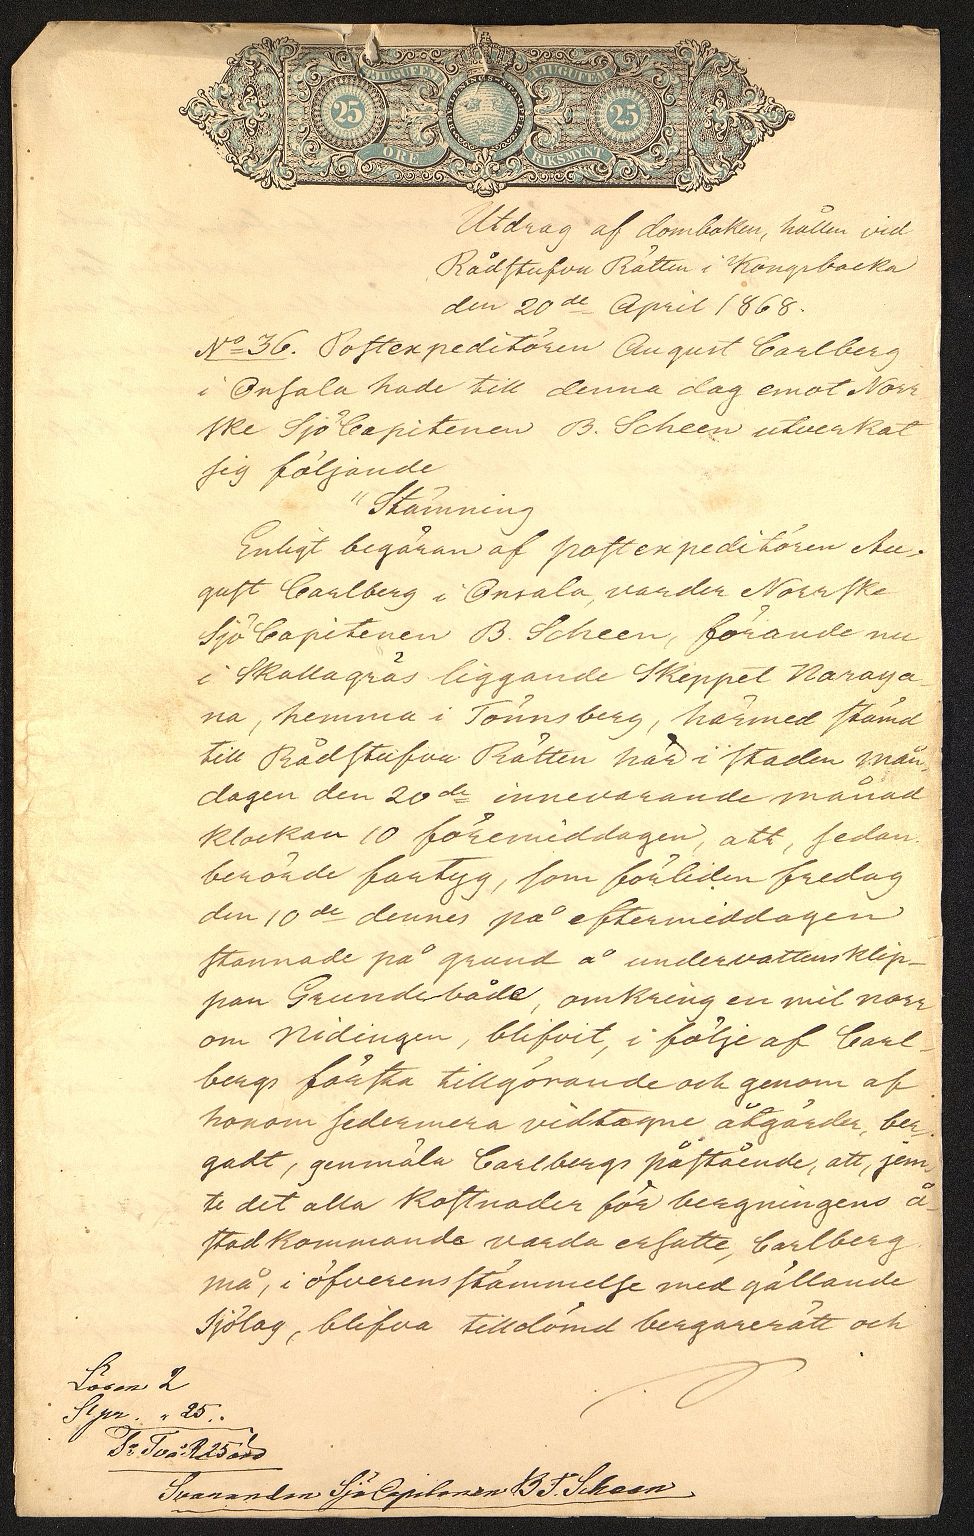 TJUGUFEM
TJUGUFEM
25
25
ÖRE
RIKSMYNT
Utdrag af domboken, hållen vid
Rådstufvu Rätten i Kongsbacka
den 20de April 1868.
No 36. Postexpeditören August Carlberg
i Onsala hade till denna dag emot Norr-
ske SjöCapitenen B. Scheen utverkat
sig följande
"Stämning
Enligt begäran af postexpeditören Au-
gust Carlberg i Onsala, varder Norrske
SjöCapitenen B. Scheen, förande nu
i Skallagräs liggande Skeppet Naraya-
na, hemma i Tönnsberg, härmed stämd
till Rådstufvu Rätten här i staden mån-
dagen den 20de innevarande månad
klockan 10 föremiddagen, att, sedan
berörde fartyg, som förliden fredag
den 10de dennes på eftermiddagen
stannade på grund å undervattensklip-
pan Grundebåde, omkring en mil norr
om Nidingen, blifvit, i följe af Carl-
bergs första tillgörande och genom af
honom sedermera vidtagne åtgärder, ber-
gadt, genmäla Carlbergs påstående, att, jem-
te det alla kostnader för bergningens å-
stadkommande varda ersatte, Carlberg
må, i öfverensstämmelse med gällande
Sjölag, blifva tilldömd bergarerätt och
Lösen 2
Stpr. " 25.
Sr Två R 25 öre
Svaranden SjöCapitenen B F. Scheen